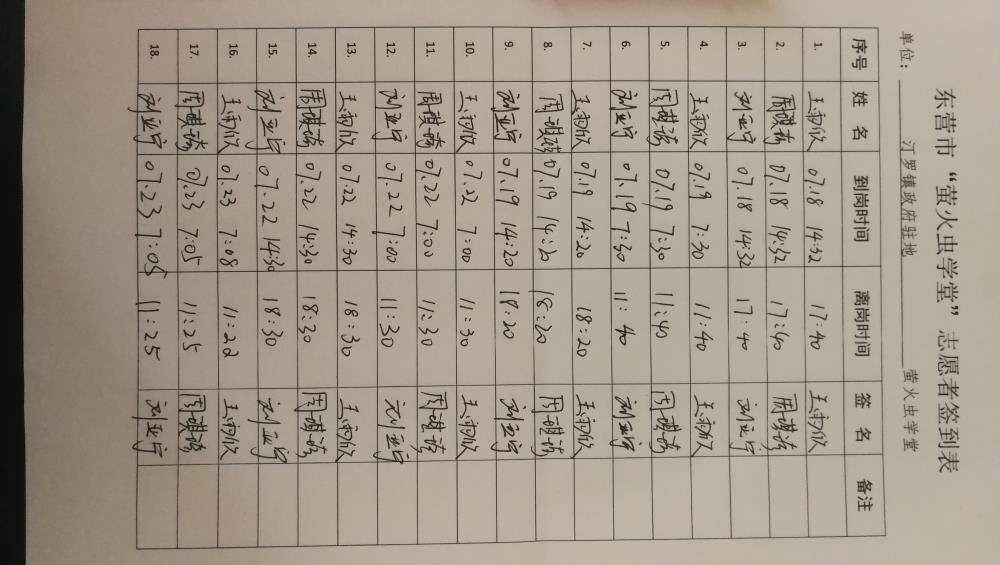 东营市“萤火虫学堂”志愿者签到表
单位： 汀罗镇政府驻地 萤火虫学堂
序号 姓 名 到岗时间 离岗时间 签 名 备注
1. 王雨欣 07.18 14:32 17:40 王雨欣
2. 周琪涵 07.18 14:32 17:40 周琪涵
3. 刘亚宁 07.18 14:32 17:40 刘亚宁
4. 王雨欣 07.19 7:30 11:40 王雨欣
5. 周琪涵 07.19 7:30 11:40 周琪涵
6. 刘亚宁 07.19 7:30 11:40 刘亚宁
7. 王雨欣 07.19 14:20 18:20 王雨欣
8. 周琪涵 07.19 14:20 18:20 周琪涵
9. 刘亚宁 07.19 14:20 18:20 刘亚宁
10. 王雨欣 07.22 7:00 11:30 王雨欣
11. 周琪涵 07.22 7:00 11:30 周琪涵
12. 刘亚宁 07.22 7:00 11:30 刘亚宁
13. 王雨欣 07.22 14:30 18:30 王雨欣
14. 周琪涵 07.22 14:30 18:30 周琪涵
15. 刘亚宁 07.22 14:30 18:30 刘亚宁
16. 王雨欣 07.23 7:08 11:22 王雨欣
17. 周琪涵 07.23 7:05 11:25 周琪涵
18. 刘亚宁 07.23 7:05 11:25 刘亚宁